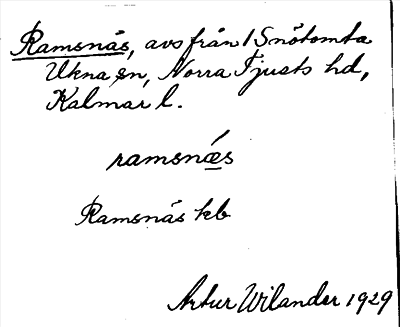 Ramsnäs, avs från 1 Snötomta
Ukna sn, Norra Tjusts hd,
Kalmar l.
ramsnæ̲s
Ramsnäs hb
Artur Wilander 1929